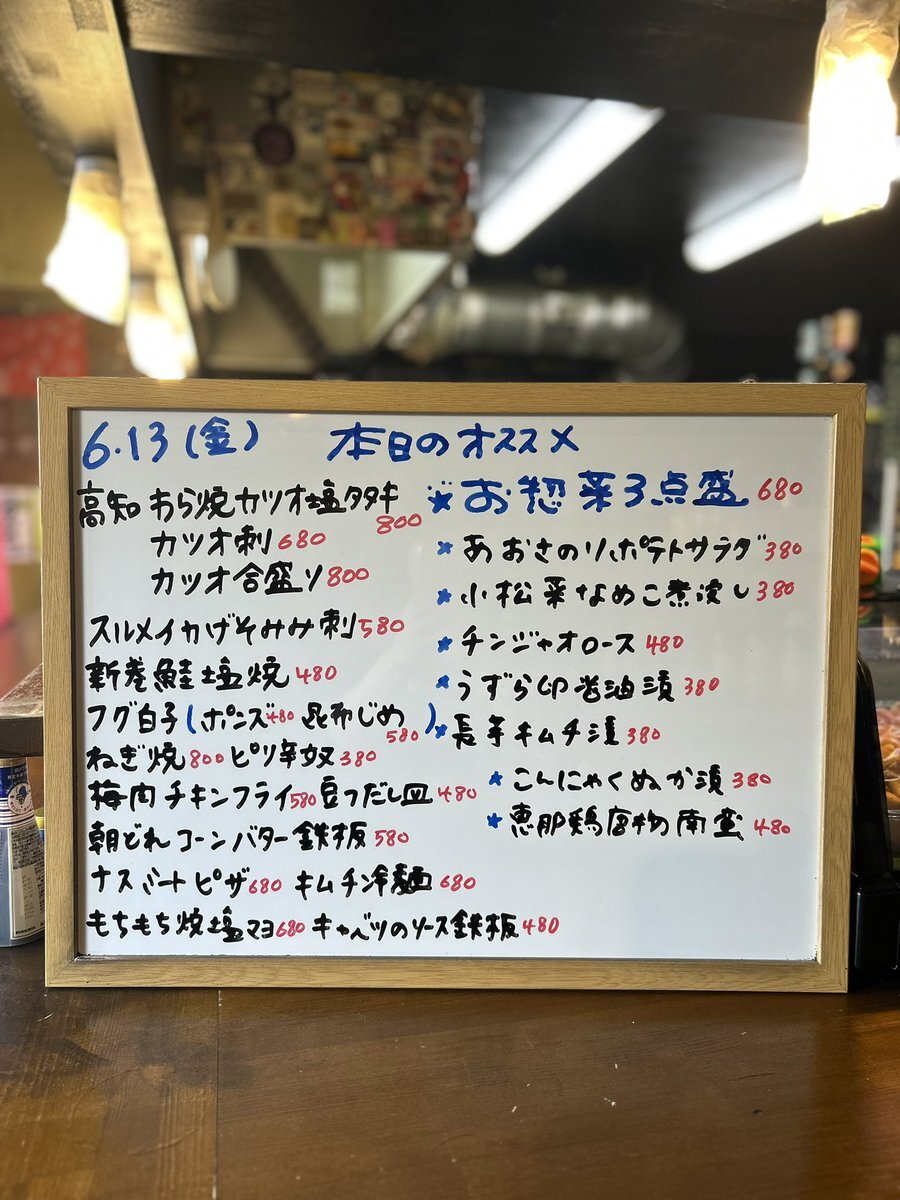 6.13(金) 本日のオススメ
高知 わら焼カツオ塩タタキ 800
カツオ刺 680
カツオ合盛り 800
スルメイカげそみみ刺 580
新巻鮭塩焼 480
フグ白子(ポンズ480 昆布じめ580)
ねぎ焼 800 ピリ辛奴 380
梅肉チキンフライ 580 豆つだし皿 480
朝どれコーンバター鉄板 580
ナスミートピザ 680 キムチン冷麺 680
もちもち焼塩マヨ 680 キャベツのソース鉄板 480
★お惣菜3点盛 680
★あおさのりポテトサラダ 380
★小松菜なめこ煮浸し 380
★チンジャオロース 480
★うずら卵醤油漬 380
★長芋キムチ漬 380
★こんにゃくぬか漬 380
★恵那鶏唐揚南蛮 480